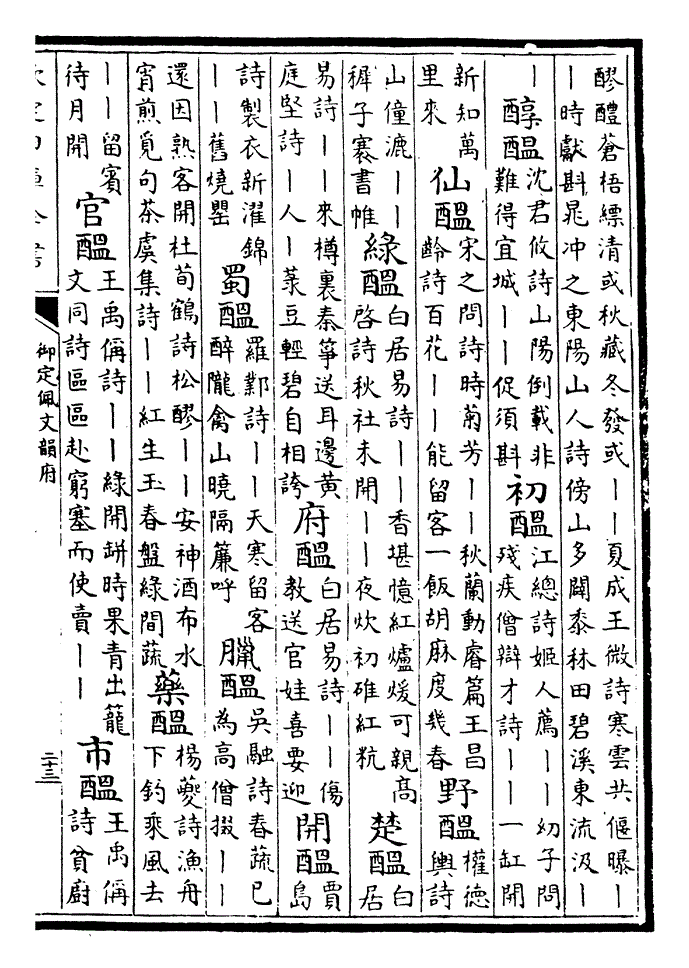 醪醴蒼梧縹清或秋藏冬發或｜｜夏成王微詩寒雲共偃曝｜
｜時獻斟晁冲之東陽山人詩傍山多闢黍秫田碧溪東流汲｜
｜
醇醞
沈君攸詩山陽倒載非
難得宜城｜｜促須斟
初醞
江總詩姬人薦｜｜幼子問
殘疾僧辯才詩｜｜一缸開
新知萬
里來
仙醞
宋之問詩時菊芳｜｜秋蘭動睿篇王昌
齡詩百花｜｜能留客一飯胡麻度幾春
野醞
權德
輿詩
山僮漉｜｜
穉子褰書帷
綠醞
白居易詩｜｜香堪憶紅爐煖可親高
啓詩秋社未開｜｜夜炊初碓紅秔
楚醞
白
居
易詩｜｜來樽裏秦箏送耳邊黄
庭堅詩｜人｜菉豆輕碧自相誇
府醞
白居易詩｜｜傷
教送官娃喜要迎
開醞
賈
島
詩製衣新濯錦
｜｜舊燒罌
蜀醞
羅鄴詩｜｜天寒留客
醉隴禽山曉隔簾呼
臘醞
吳融詩春蔬已
為高僧掇｜｜
還因熟客開杜荀鶴詩松醪｜｜安神酒布水
宵煎覓句茶虞集詩｜｜紅生玉春盤綠間蔬
藥醞
楊夔詩漁舟
下釣乘風去
｜｜留賓
待月開
官醞
王禹偁詩｜｜綠開缾時果青出籠
文同詩區區赴窮塞而使賣｜｜
市醞
王禹偁
詩貧廚
欽定四庫全書
御定佩文韻府
二十三